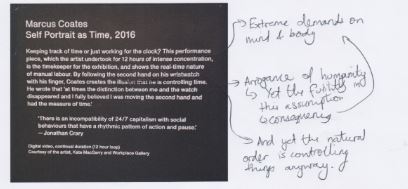 Marcus Coates
Self Portrait as Time, 2016
Keeping track of time or just working for the clock? This performance
piece, which the artist undertook for 12 hours of intense concentration,
is the timekeeper for the exhibition, and shows the real-time nature
of manual labour. By following the second hand on his wristwatch
with his finger, Coates creates the illusion that he is controlling time.
He wrote that 'at times the distinction between me and the watch
disappeared and I fully believed I was moving the second hand and
had the measure of time.'
'There is an incompatibility of 24/7 capitalism with social
behaviours that have a rhythmic pattern of action and pause.'
— Jonathan Crary
Digital video, continual duration (12 hour loop)
Courtesy of the artist, Kate MacGarry and Workplace Gallery
Extreme demands on
mind & body
Arrogance of humanity
Yet the futility in
this assumption
& consequences
And yet the natural
order is controlling
things anyway.